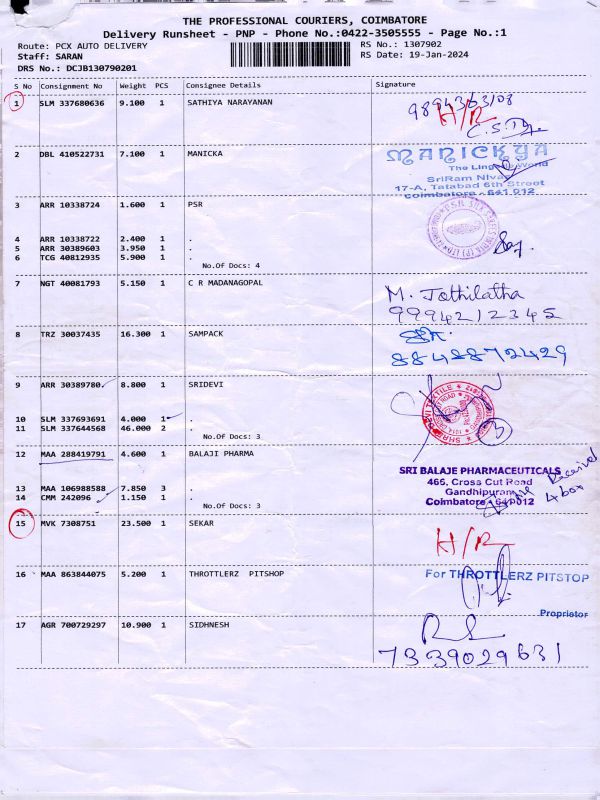 THE PROFESSIONAL COURIERS, COIMBATORE
Delivery Runsheet - PNP - Phone No.:0422-3505555 - Page No.:1
Route: PCX AUTO DELIVERY RS No.: 1307902
Staff: SARAN RS Date: 19-Jan-2024
DRS No.: DCJB130790201
S No Consignment No Weight PCS Consignee Details Signature
1 SLM 337680636 9.100 1 SATHIYA NARAYANAN
H/R
2 DBL 410522731 7.100 1 MANICKA MANICKYA
SriRam Nivas
17-A, Tatabad 6th Street
Coimbatore - 641 012
3 ARR 10338724 1.600 1 PSR
4 ARR 10338722 2.400 1 .
5 ARR 30389603 3.950 1 .
6 TCG 40812935 5.900 1 .
No.Of Docs: 4
7 NGT 40081793 5.150 1 C R MADANAGOPAL M. Jothilatha
9994212345
8 TRZ 30037435 16.300 1 SAMPACK
8842872429
9 ARR 30389780 8.800 1 SRIDEVI
10 SLM 337693691 4.000 1 .
11 SLM 337644568 46.000 2 .
No.Of Docs: 3 3
12 MAA 288419791 4.600 1 BALAJI PHARMA
SRI BALAJE PHARMACEUTICALS
466, Cross Cut Road
Gandhipuram
Coimbatore - 641012
Received
4 box
13 MAA 106988588 7.850 3 .
14 CMM 242096 1.150 1 .
No.Of Docs: 3
15 MVK 7308751 23.500 1 SEKAR H/R
16 MAA 863844075 5.200 1 THROTTLERZ PITSHOP For THROTTLERZ PITSTOP
Proprietor
17 AGR 700729297 10.900 1 SIDHNESH
7339029631